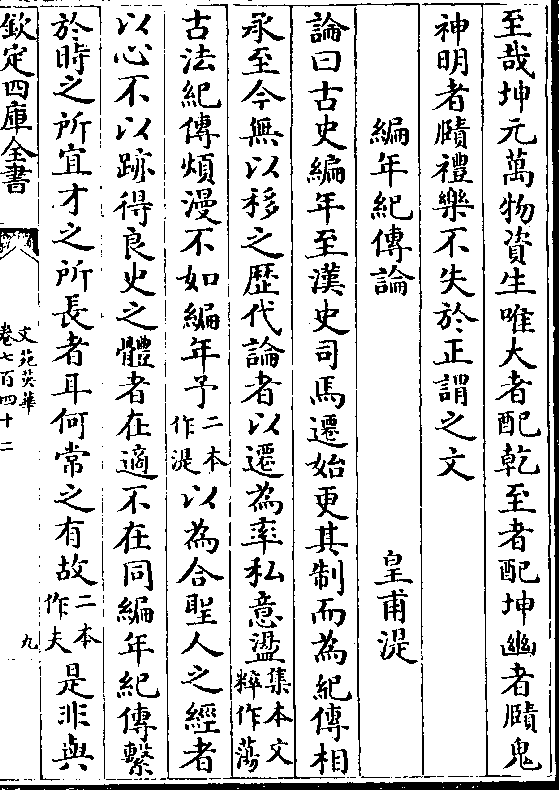 至哉坤元萬物資生唯大者配乾至者配坤幽者賾鬼
神明者賾禮樂不失於正謂之文
編年紀傳論
皇甫湜
論曰古史編年至漢史司馬遷始更其制而為紀傳相
承至今無以移之歷代論者以遷為率私意盪集本文粹作蕩
古法紀傳煩漫不如編年予二本作湜以為合聖人之經者
以心不以跡得良史之體者在適不在同編年紀傳繫
於時之所宜才之所長者耳何常之有故二本作夫是非與
欽定四庫全書
文苑英華
卷七百四十二
九